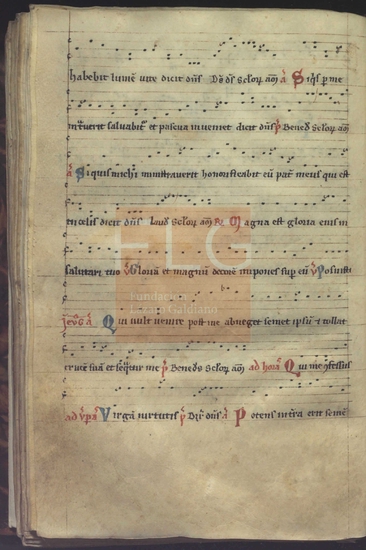 habebit lumē uite dicit dn̄s Dē dn̄s sclor̄ am̄ a Siq̄s p me
intuerit saluabit̄ et pascua inueniet dicit dn̄s p̄ Bened̄ sclor̄ am̄
a Si quis michi ministrauerit honorificabit eū pat̄ meus qui est
in celis dicit dn̄s laud sclor̄ am̄ R̄ Magna est gloria eius in
salutari tuo v̄ Gloriā et magnū decorē impones sup eū v̄ Posuisti
Qui uult uenire post me abneget semet ipsū t tollat
crucē suā et seq̄tur me p̄ Bened̄s sclor̄ am̄ ad horā Qui me ꝯfessus
ad vp̄a Virgā uirtutis p̄ Dix̄ dn̄s a Potens in tr̄a erit semē
FLG
Fundación
Lázaro Galdiano